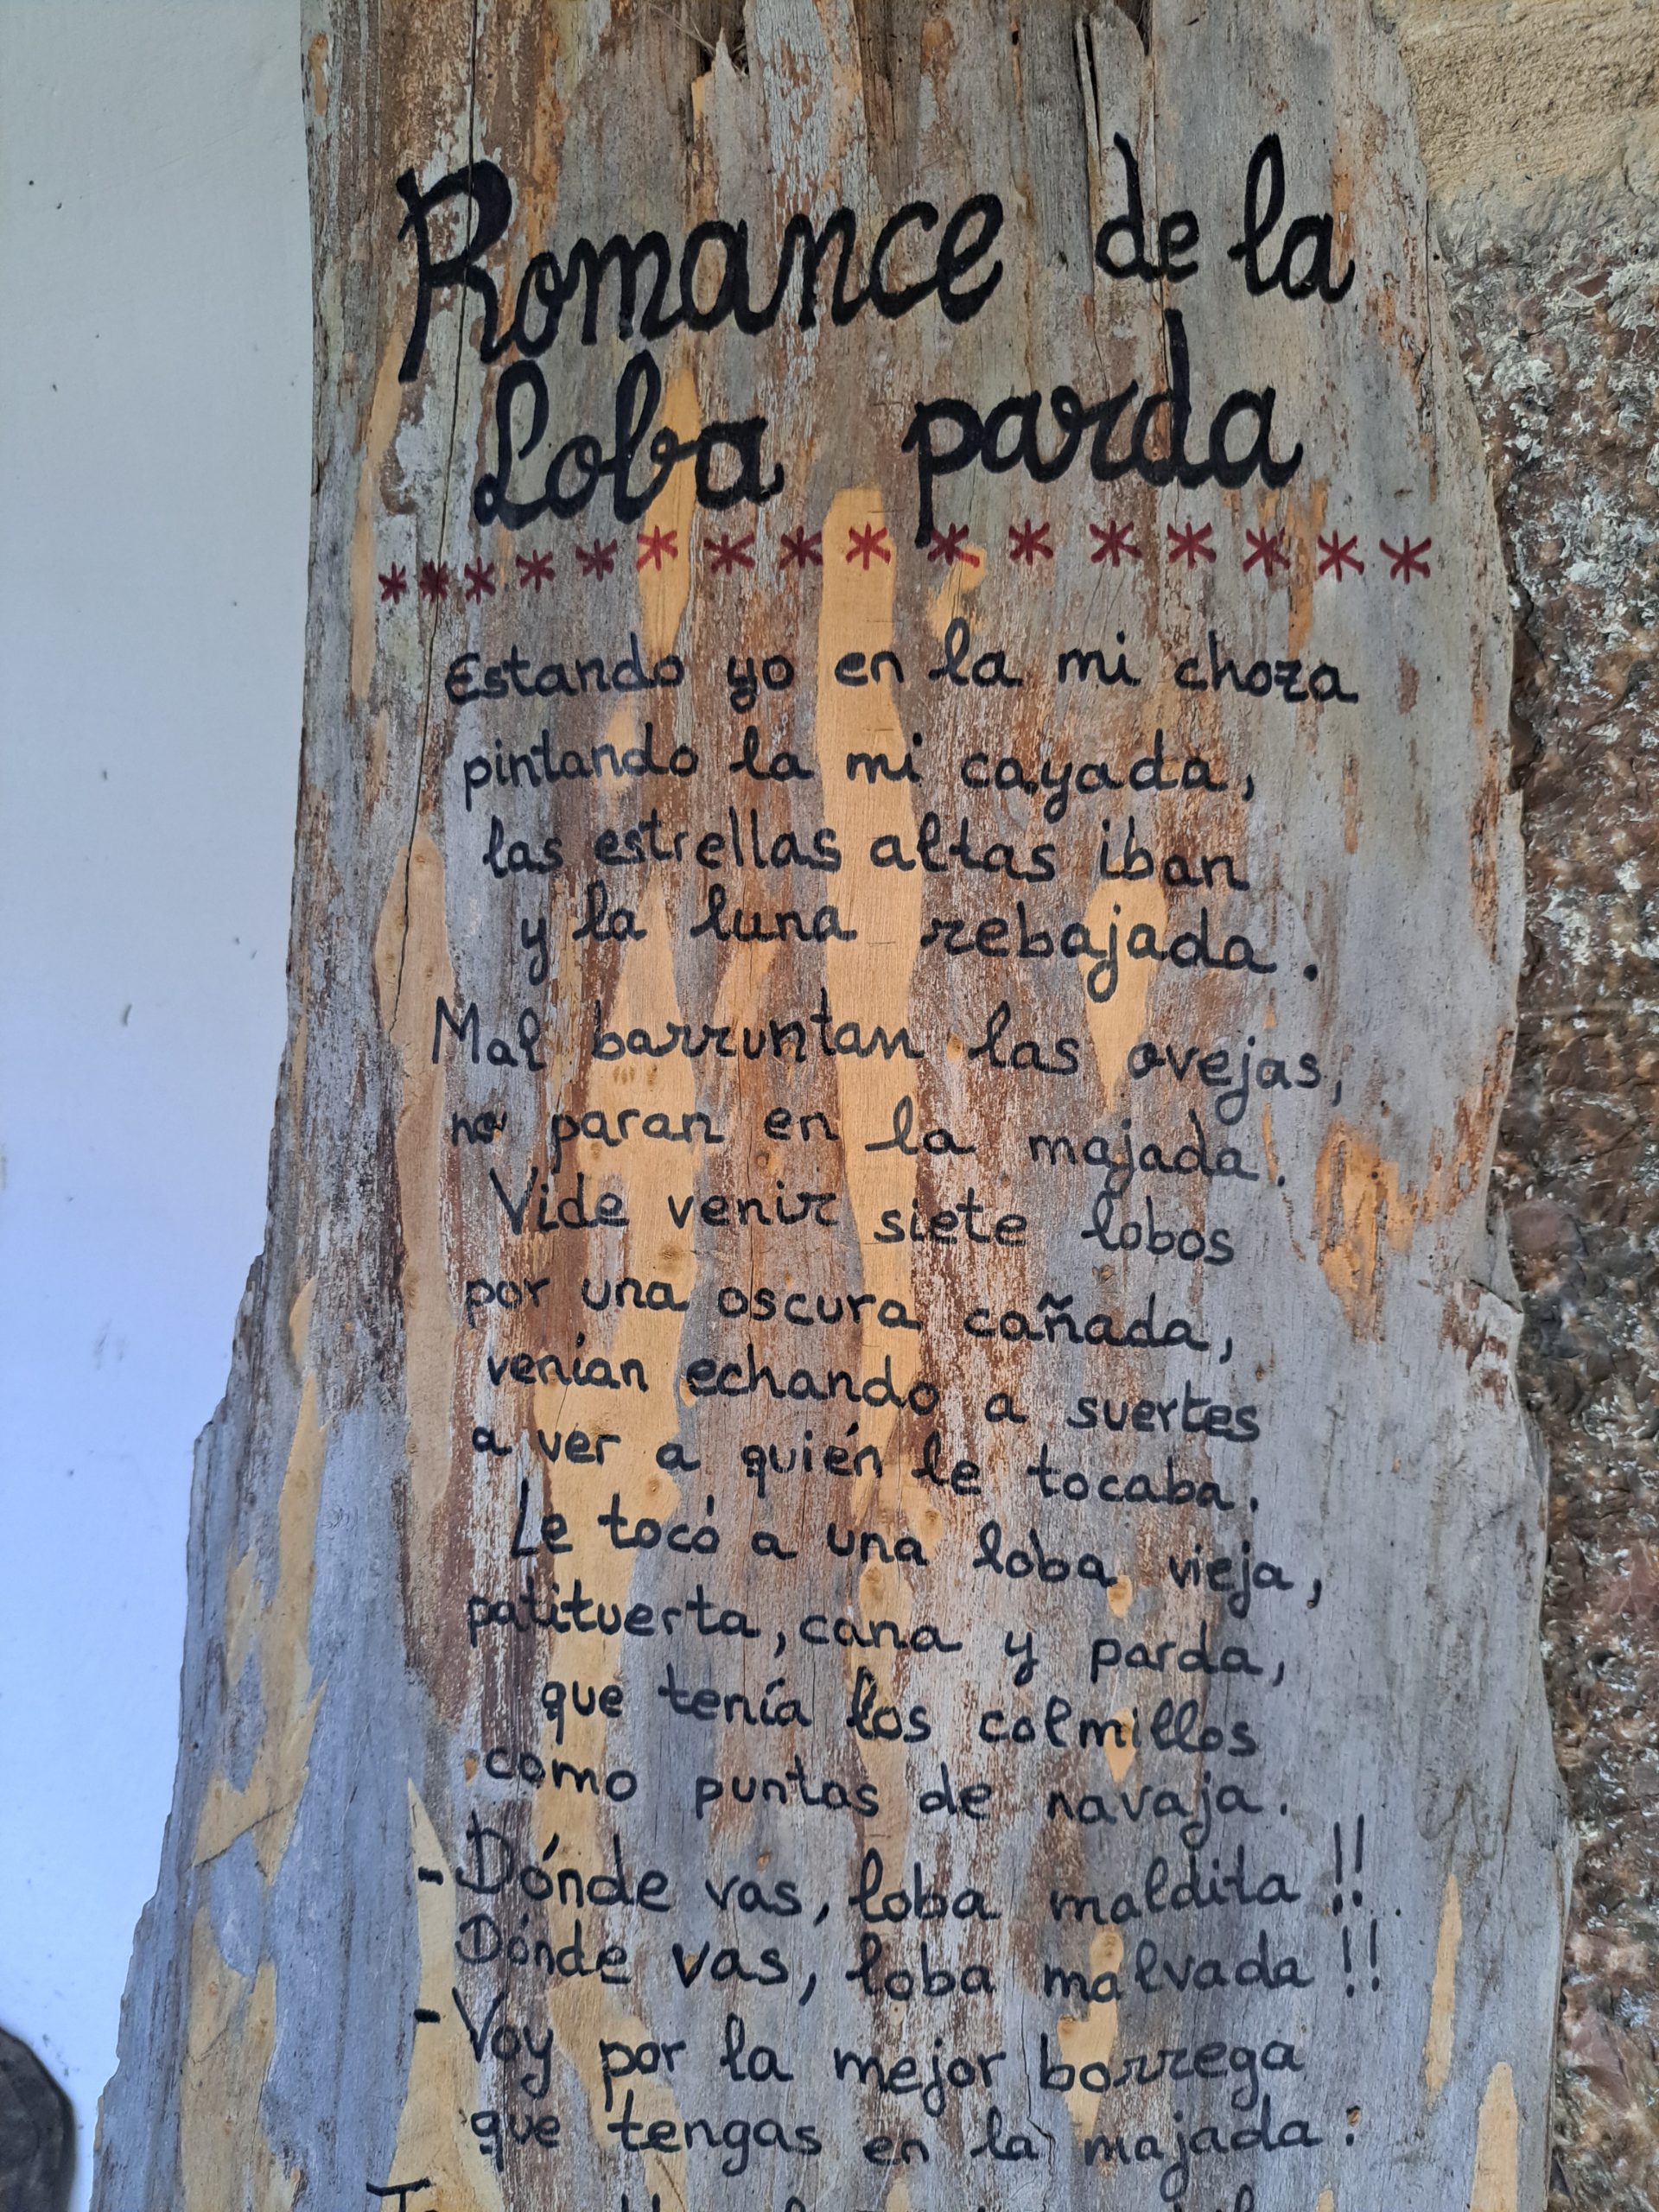 Romance de la
Loba parda
***************
Estando yo en la mi choza
pintando la mi cayada,
las estrellas altas iban
y la luna rebajada.
Mal barruntan las ovejas,
no paran en la majada.
Vide venir siete lobos
por una oscura cañada,
venían echando a suertes
a ver a quién le tocaba.
Le tocó a una loba vieja,
patituerta, cana y parda,
que tenía los colmillos
como puntas de navaja.
-Dónde vas, loba maldita!!
Dónde vas, loba malvada!!
-Voy por la mejor borrega
que tengas en la majada.